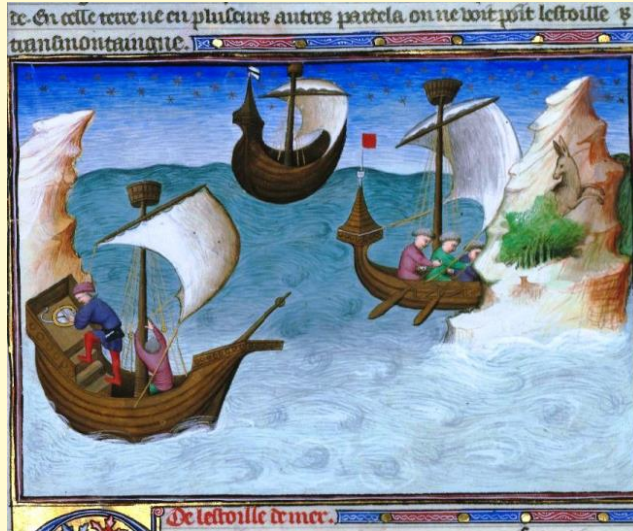 de. En celle terre ne en pluseurs autres partela on ne voit poit lestoille
transmontaingne.
De lestoille de mer.